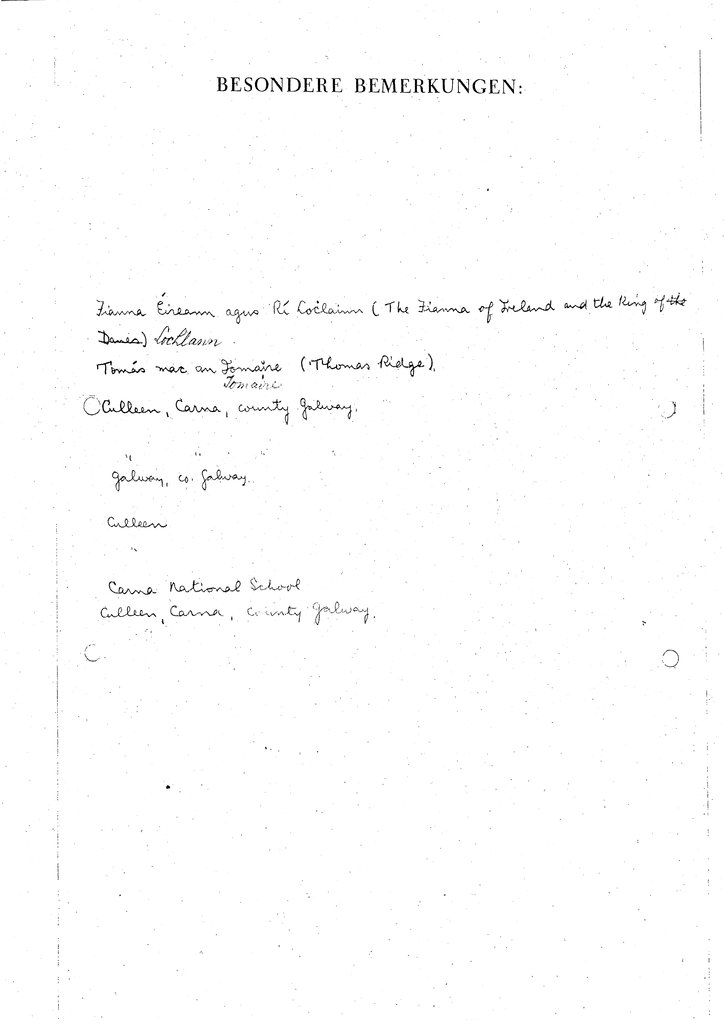 BESONDERE BEMERKUNGEN:
Fianna Éireann agus Rí Loċlainn (The Fianna of Ireland and the King of the
Danes) Lochlann.
Tomás mac an Iomaire (Thomas Ridge),
Iomaire
Culleen, Carna, county Galway.
" " "
Galway, co. Galway.
Culleen
"
Carna National School
Culleen, Carna, county Galway.